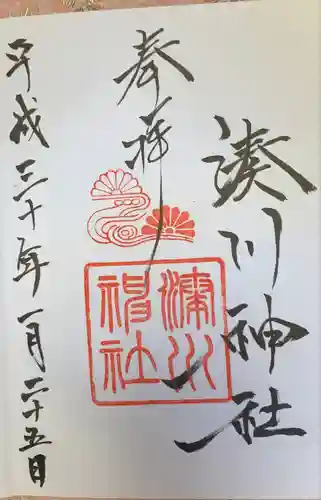 湊川神社
奉拝
湊川神社
平成三十年一月二十五日